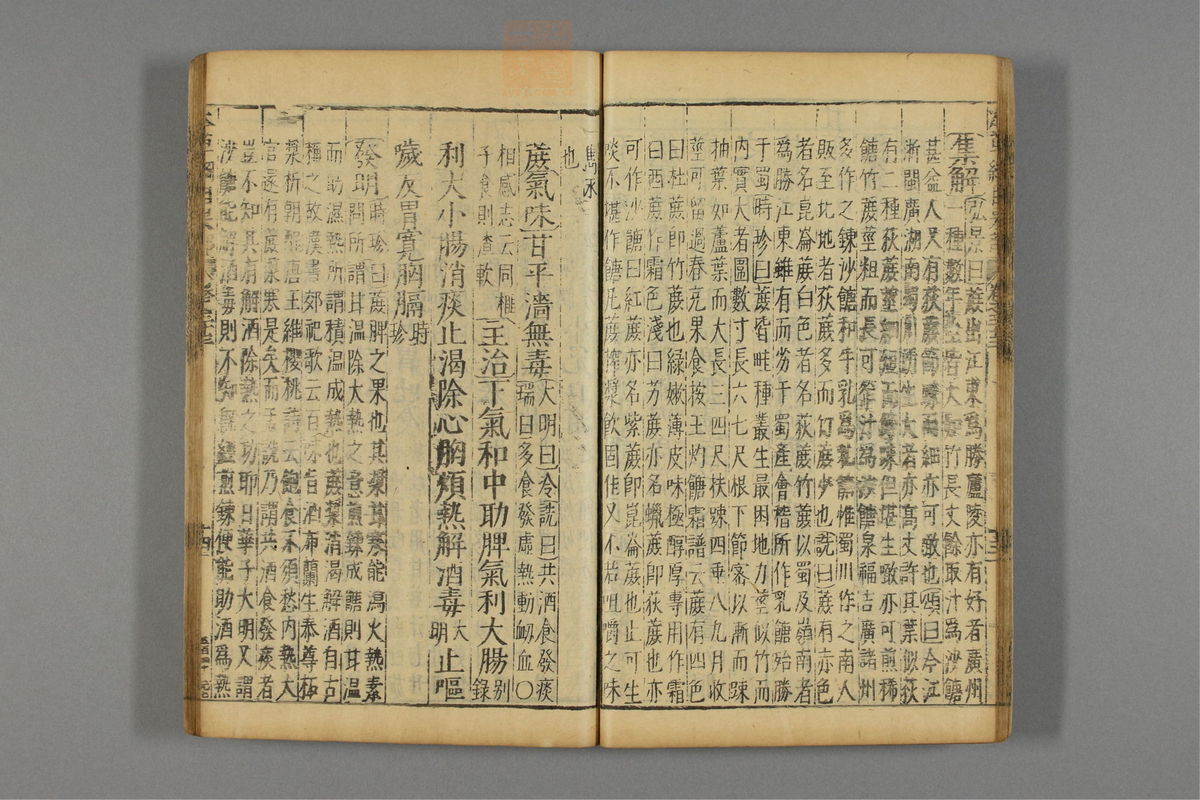 集解弘景曰蔗出江東爲勝廬陵亦有好者廣州
一種數年生皆大如竹長丈餘取汁爲沙餹
甚益人又有荻蔗節疎而細亦可噉也頌曰今江
浙閩廣湖南蜀川所生大者亦高丈許其葉似荻
有二種荻蔗莖細短而節疎但堪生噉亦可煎稀
餹竹蔗莖粗而長可笮汁爲沙餹泉福吉廣諸州
多作之鍊沙餹和牛乳爲乳餹惟蜀川作之南人
販至北地者荻蔗多而竹蔗少也詵曰蔗有赤色
者名崑崙蔗白色者名荻蔗竹蔗以蜀及嶺南者
爲勝江東雖有而劣于蜀產會稽所作乳餹殆勝
于蜀時珍曰蔗皆畦種叢生最困地力莖似竹而
內實大者圍數寸長六七尺根下節密以漸而疎
抽葉如蘆葉而大長三四尺扶疎四垂八九月收
莖可留過春充果食按王灼餹霜譜云蔗有四色
曰杜蔗即竹蔗也綠嫩薄皮味極醇厚專用作霜
曰西蔗作霜色淺曰艻蔗亦名蠟蔗即荻蔗也亦
可作沙餹曰紅蔗亦名紫蔗即崑崙蔗也止可生
啖不堪作餹凡蔗榨漿飲固佳又不若咀嚼之味
雋永
也
蔗氣味甘平濇無毒大明曰冷詵曰共酒食發痰
瑞曰多食發虛熱動衂血〇
相感志云同榧
子食則渣軟主治下氣和中助脾氣利大腸别錄
利大小腸消痰止渴除心胸煩熱解酒毒大明止嘔
噦反胃寬胸膈時珍
發明時珍曰蔗脾之果也其漿甘寒能瀉火熱素
問所謂甘溫除大熱之意煎鍊成餹則甘溫
而助濕熱所謂積溫成熱也蔗漿消渴解酒自古
稱之故漢書郊祀歌云百味旨酒布蘭生泰尊柘
漿析朝酲唐王維櫻桃詩云飽食不須愁內熱大
官還有蔗漿寒是矣而孟詵乃謂共酒食發痰者
豈不知其有解酒除熱之功耶日華子大明又謂
沙餹能解酒毒則不知既經煎鍊便能助酒爲熱